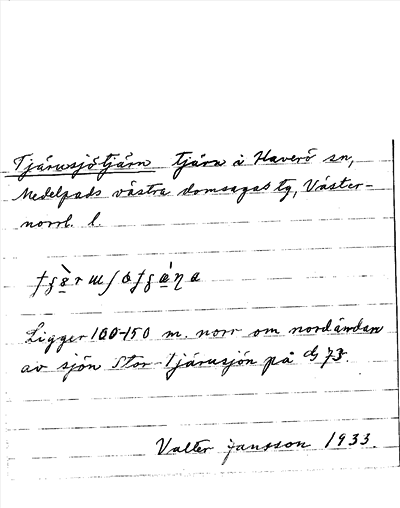 Tjärusjötjärn tjärn i Haverö sn,
Medelpads västra domsagas tg, Väster-
norrl. l.
Ligger 100-150 m. norr om nordändan
av sjön Stor-Tjärusjön på dg 73.
Valter Jansson 1933.